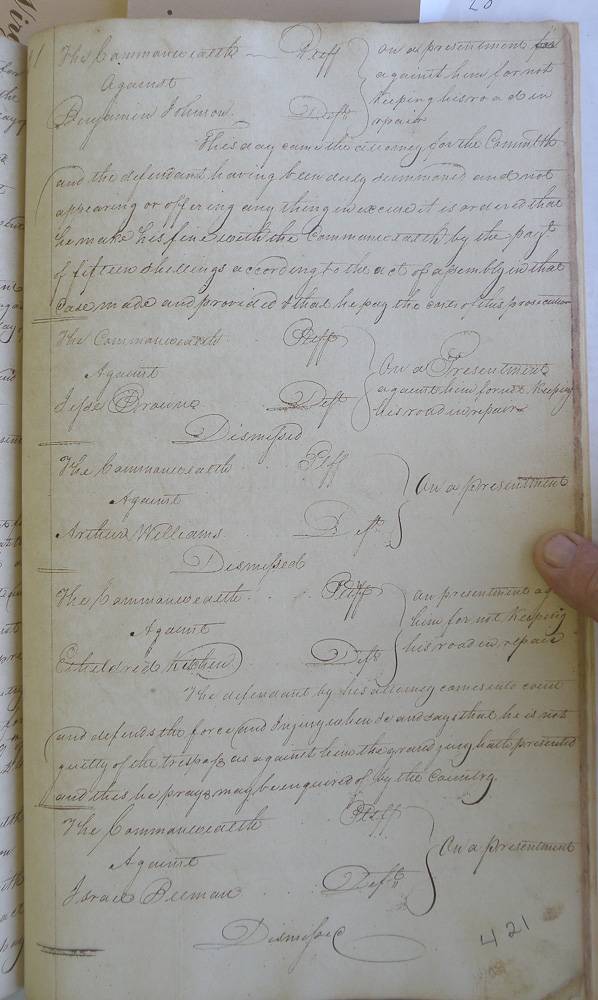 The Commonwealth Pltff on a presentment for
Against against him for not
Benjamin Johnson Deft keeping his road in
repair
This day came the attorney for the Commth
and the defendant having been duly summoned and not
appearing or offering any thing in excuse it is ordered that
he make his fine with the Commonwealth by the payt
of fifteen shillings according to the act of assembly in that
Case made and provided & that he pay the costs of this prosecution
The Commonwealth Pltff
Against On a Presentment
Jesse Browne Deft against him for not Keeping
his road in repair
Dismissed
The Commonwealth Pltff
Against On a presentment
Arthur Williams Deft
Dismissed
The Commonwealth Pltff on presentment ag
Against him for not Keeping
Etheldred Kitchen Deft his road in repair
The defendant by his attorney comes into court
and defends the force and Injury when &c and says that he is not
guilty of the trespass as against him the grand jury hath presented
and this he prays may be enquired of by the Country
The Commonwealth Pltff
Against On a presentment
Israel Beeman Deft
Dismissed
421